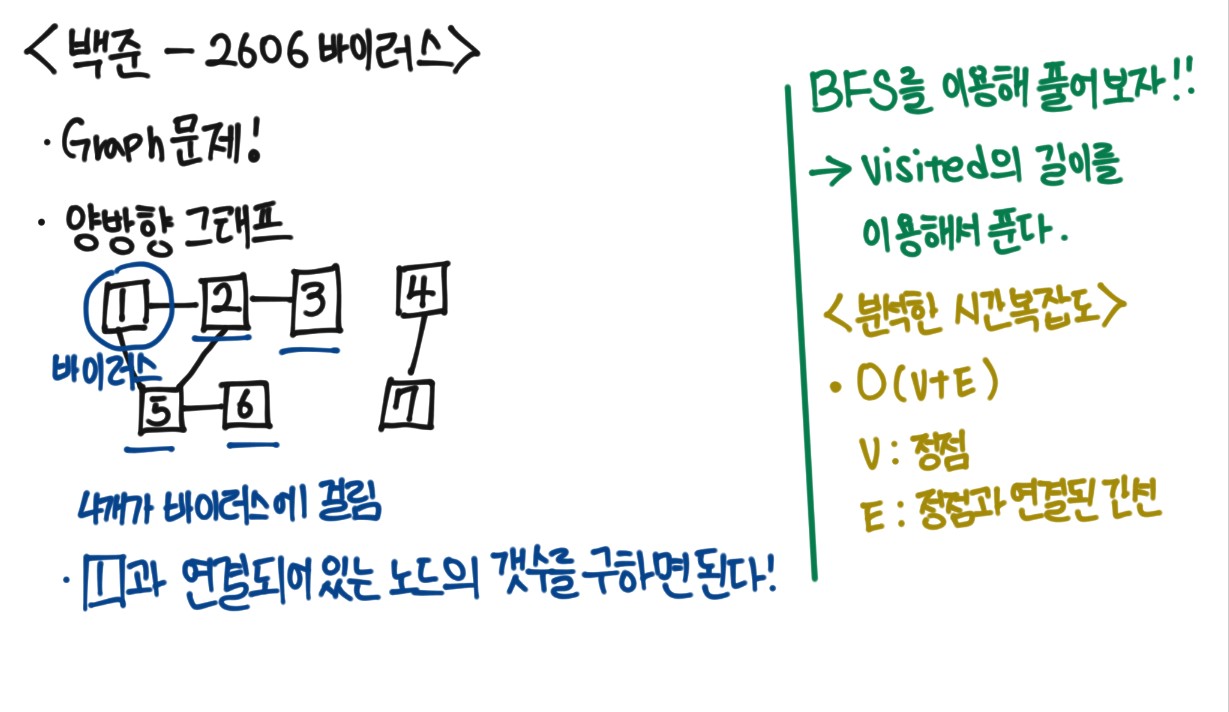 <백준 - 2606 바이러스>
· Graph 문제!
· 양방향 그래프
1 2 3 4
바이러스
5 6 7
4개가 바이러스에 걸림
· 1과 연결되어 있는 노드의 갯수를 구하면 된다!
BFS를 이용해 풀어보자!!
→ visited의 길이를
이용해서 푼다.
<분석한 시간복잡도>
· O(V+E)
V : 정점
E : 정점과 연결된 간선